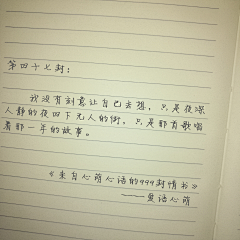 第四十七封：
我没有刻意让自己去想，只是夜深
人静的夜四下无人的街，只是那首歌唱
着那一年的故事。
《来自心萌心语的999封情书》
——鱼话心萌